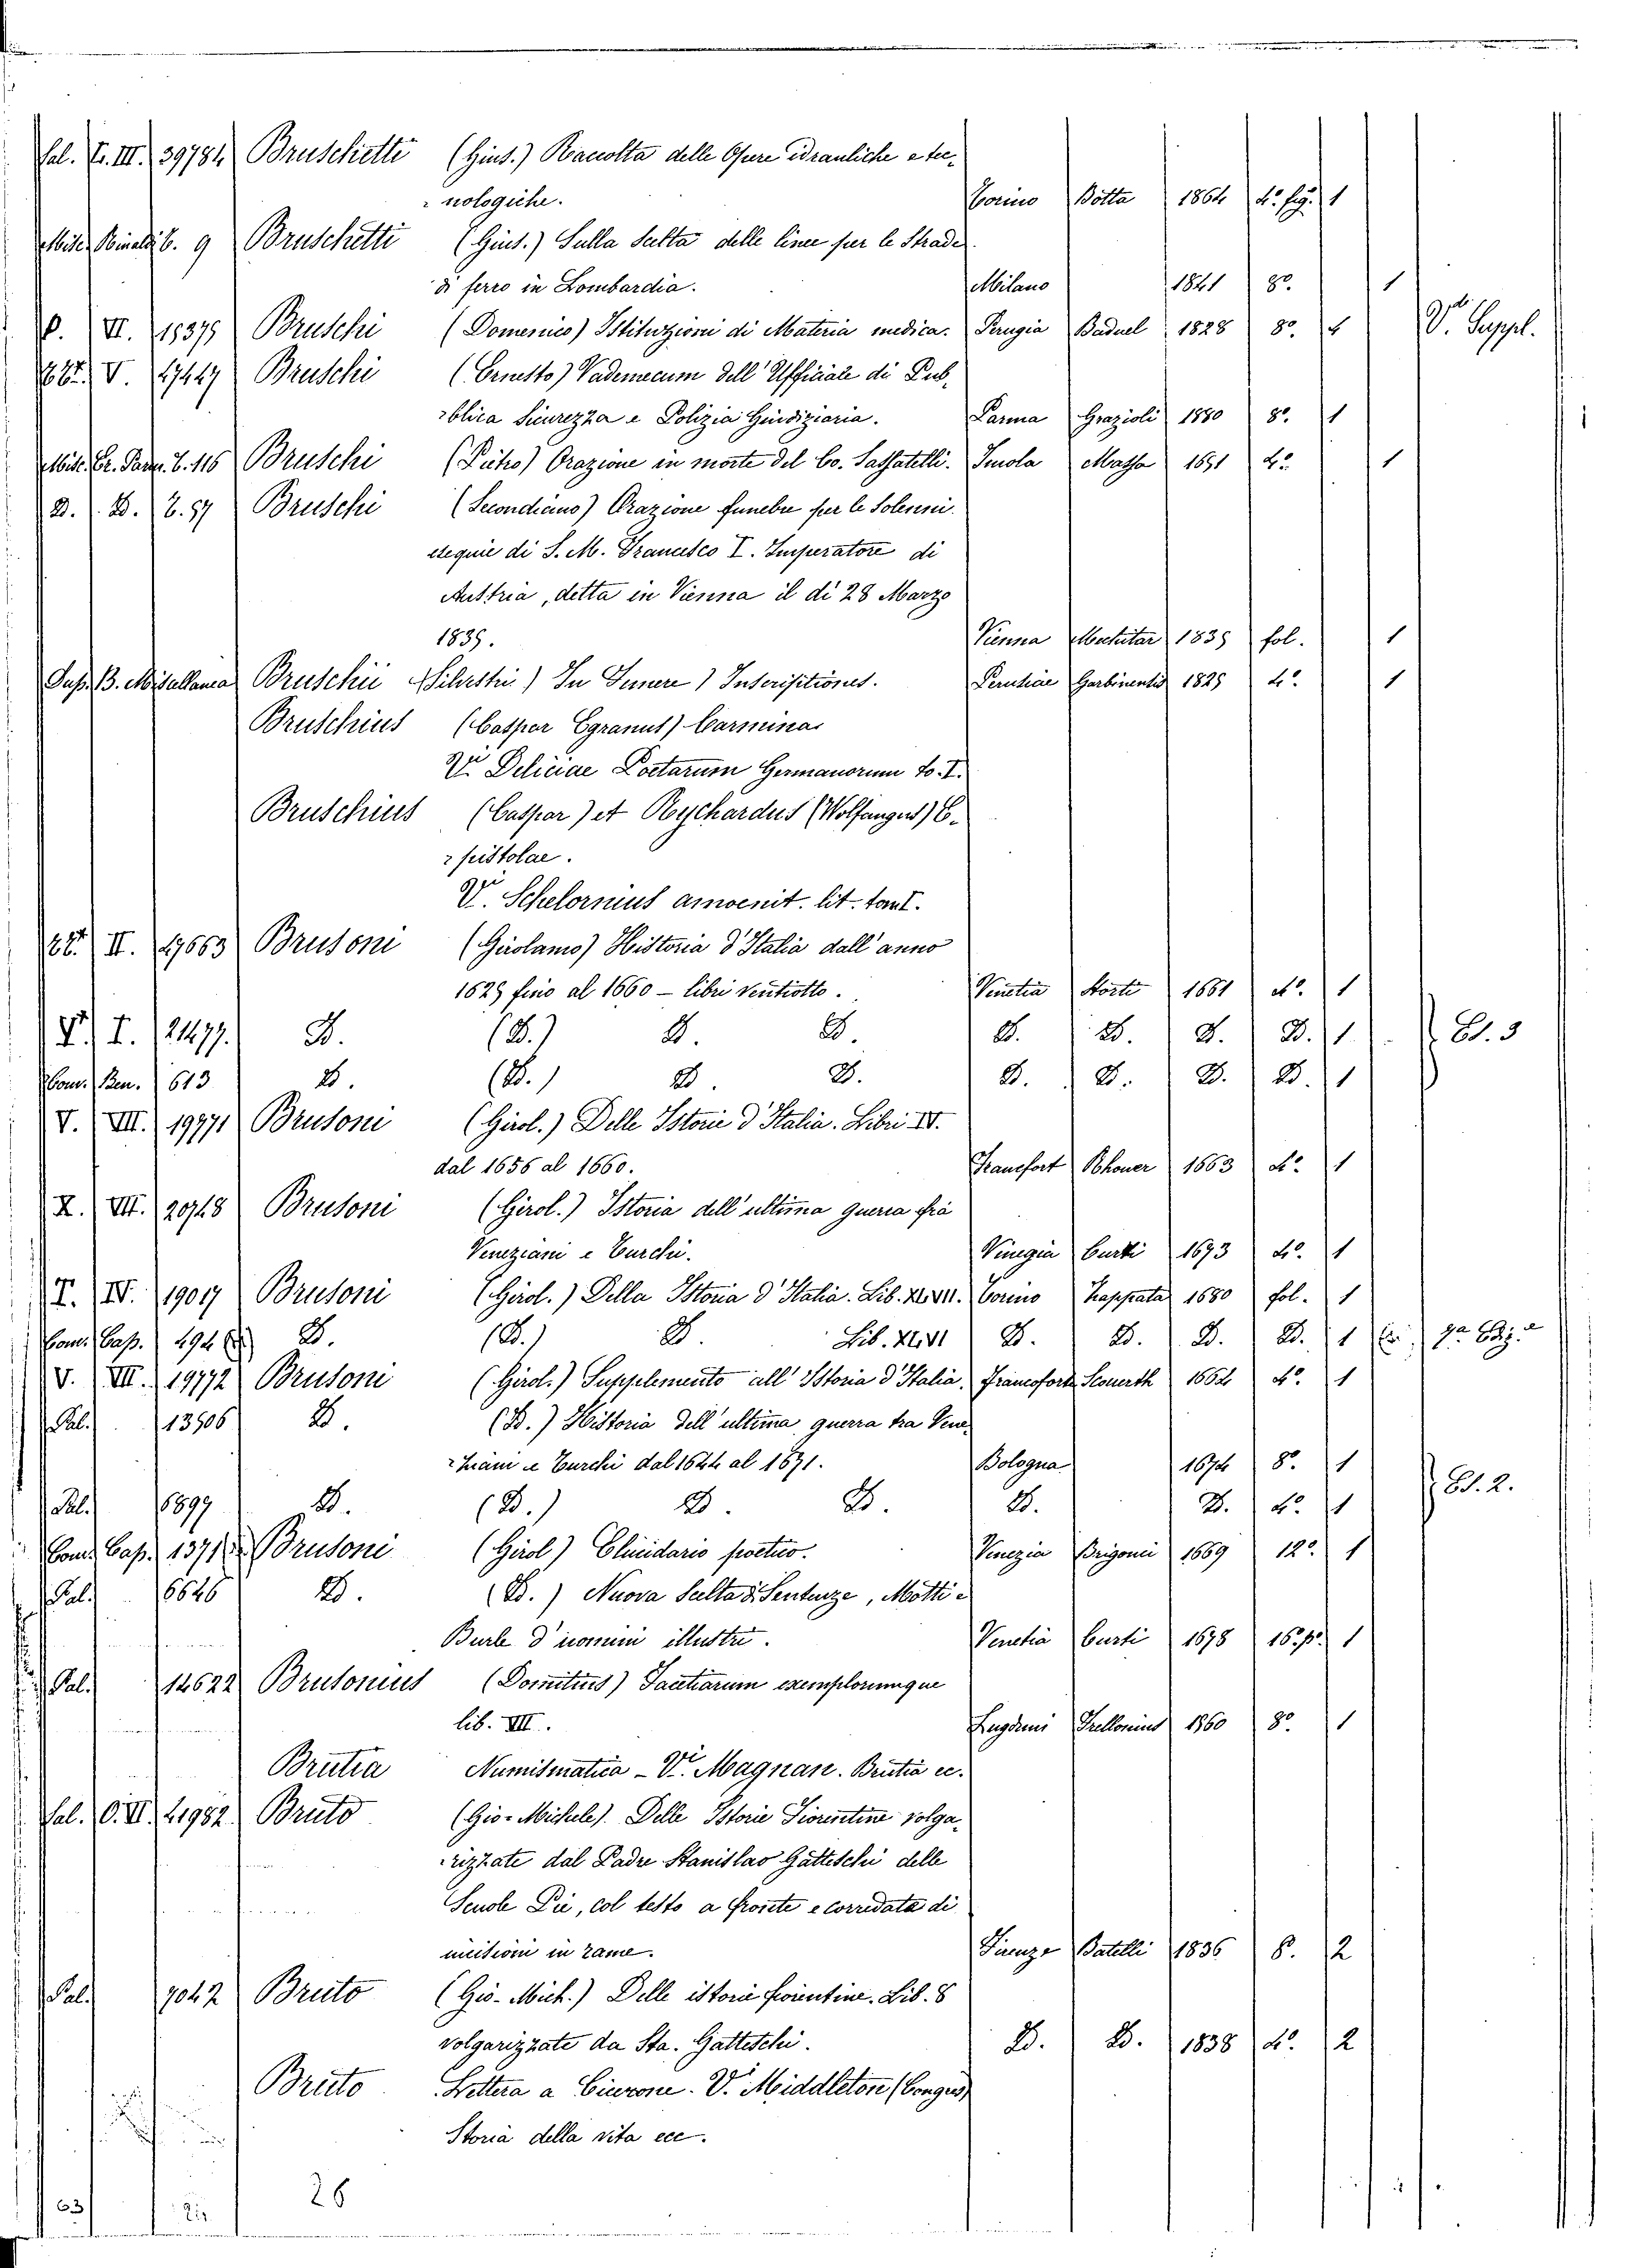 Sal. Er. III. 39784 Bruschetti (Gius.) Raccolta delle Opere idrauliche e tec-
nologiche. Torino Botta 1864 4.º fig. 1
Misc. Rinaldi b. 9 Bruschetti (Gius.) Sulla Scelta delle linee per le Strade
di ferro in Lombardia. Milano 1841 8º. 1
P. VI. 18375 Bruschi (Domenico) Istituzioni di Materia medica. Perugia Baduel 1828 8º. 4 V. Suppl.
V. 27447 Bruschi (Ernesto) Vademecum dell' Ufficiale di Pub-
blica Sicurezza e Polizia Giudiziaria. Parma Grazioli 1880 8º. 1
Misc. Er. Parm. b. 116 Bruschi (Pietro) Orazione in morte del Co. Sassatelli. Imola Massa 1691 4º 1
D. D. b. 57 Bruschi (Secondiano) Orazione funebre per le Solenni
esequie di S. M. Francesco I. Imperatore di
Austria, detta in Vienna il di 28 Marzo
1835. Vienna 1835 fol. 1
Sup. B. Miscellanea Bruschii (Silvestri) In Funere Inscriptiones. Perusiae Garbinentis 1825 4º. 1
Bruschius (Caspar Egranus) Carmina
V. Deliciae Poetarum Germanorum to. I.
Bruschius (Caspar) et Rychardus (Wolfangus) E-
pistolae.
V. Schelornius amoenit. lit. tom I.
II. 27663 Brusoni (Girolamo) Historia d'Italia dall' anno
1625 fino al 1660 - libri ventiotto. Venetia Storti 1661 4º. 1
I. 21477. D. (D.) D. D. D. D. D. D. 1 Es. 3
Com. Ben. 613 D. (D.) D. D. D. D. D. D. 1
V. VIII. 19971 Brusoni (Girol.) Delle Istorie d'Italia. Libri IV.
dal 1656 al 1660. Francfort Rhoner 1663 4º 1
X. VII. 20748 Brusoni (Girol.) Istoria dell' ultima guerra frà
Veneziani e Turchi. Vinegia Curti 1673 4º. 1
T. IV. 19017 Brusoni (Girol.) Della Istoria d'Italia. Lib. XLVI. Torino Zappata 1680 fol. 1
Com. Cap. 494 D. (D.) D. Lib. XLVI D. D. D. D. 1 7ª Ediz.ª
V. VII. 19972 Brusoni (Girol.) Supplemento all' Istoria d'Italia. Francofort Scouerth 1664 4º. 1
Pal. 13906 D. (D.) Historia dell' ultima guerra tra Vene-
ziani e Turchi dal 1644 al 1671. Bologna 1674 8º. 1 Es. 2.
Pal. 6899 D. (D.) D. D. D. D. 4º. 1
Com. Cap. 1371 Brusoni (Girol) Elucidario poetico. Venezia Brigonci 1669 12º. 1
Pal. 6646 D. (D.) Nuova Scelta di Sentenze, Motti e
Burle d'uomini illustri. Venetia Curti 1678 16º. p. 1
Pal. 14622 Brusonius (Domitius) Facetiarum exemplorumque
lib. VII. Lugduni Frellonius 1560 8º. 1
Brutia Numismatica - V. Magnan. Brutia ec.
Sal. O. II. 21982 Bruto (Gio-Michele). Delle Istorie Fiorentine volga-
rizzate dal Padre Stanislao Gatteschi delle
Scuole Pie, col testo a fronte e corredata di
incisioni in rame. Firenze Batelli 1836 8. 2
Pal. 7042 Bruto (Gio-Mich.) Delle istorie fiorentine. Lib. 8
volgarizzate da Sta. Gatteschi. D. D. 1838 4º. 2
Bruto Lettera a Cicerone. V. Middleton (Congers)
Storia della vita ecc.
26
63